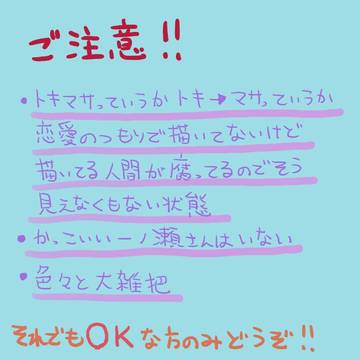 ご注意!!
・トキマサっていうかトキ→マサっていうか
恋愛のつもりで描いてないけど
描いてる人間が腐ってるのでそう
見えなくもない状態
・かっこいい一ノ瀬さんはいない
・色々と大雑把
それでもOKな方のみどうぞ!!